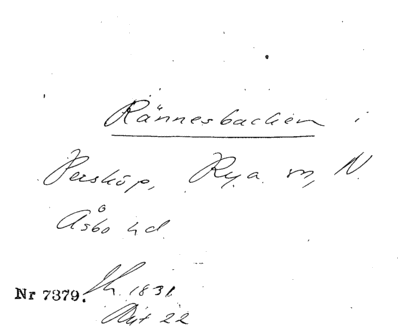 Rännesbacken i
Persköp, Rya sn, N.
Åsbo hd.
Nr 7379. Sk. 1831
Akt 22